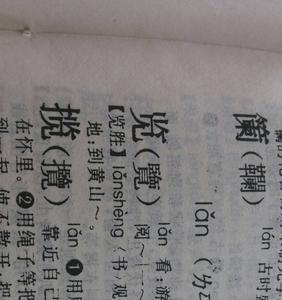 籣(韊) lán 古时
lǎn (ㄌㄢˇ
览(覽) lǎn 看:游
阅~|一~
【览胜】lǎnshèng〈书〉观
地:到黄山~。
揽(攬) lǎn ❶用
靠近自己
在怀里。❷用绳子等把
到一起,使不散开:把